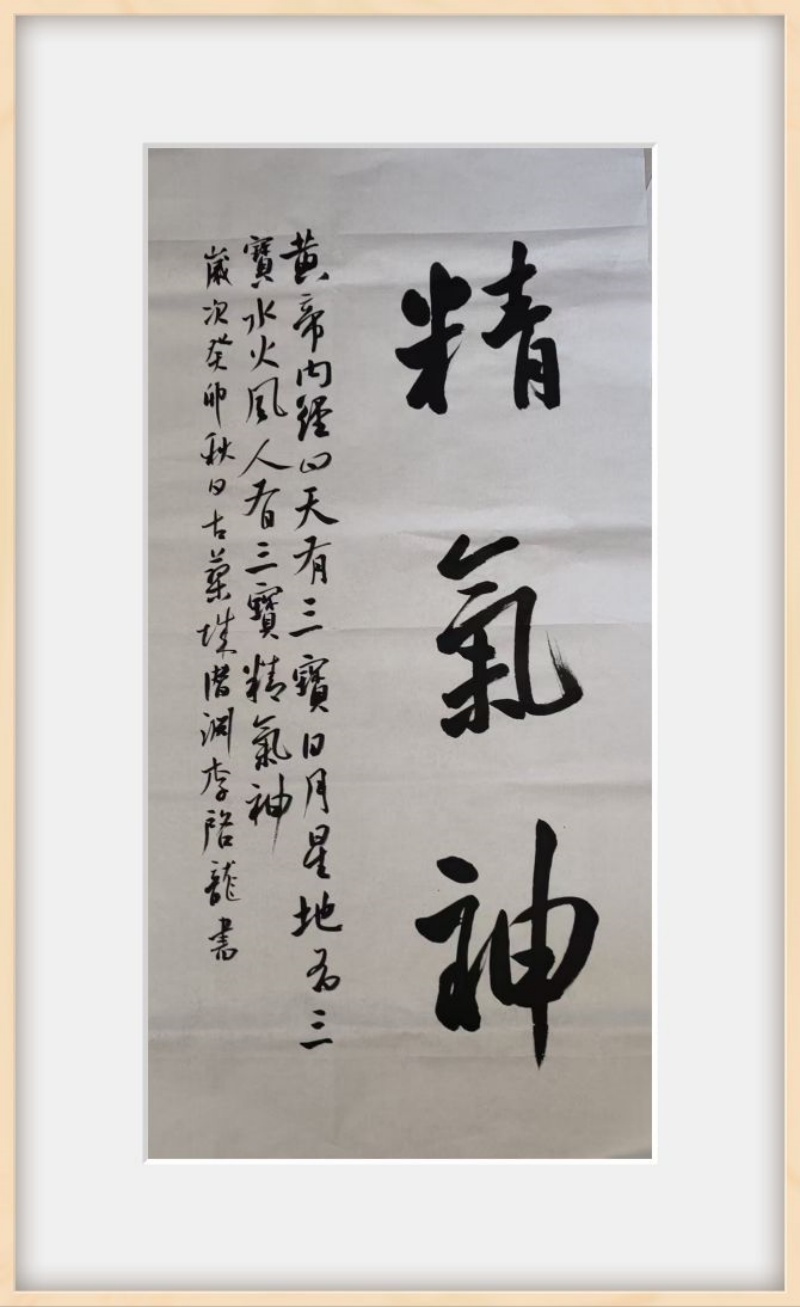 精氣神
黃帝內經曰天有三寶日月星地有三
寶水火風人有三寶精氣神
歲次癸卯秋日古藥城潛淵李啓龍書